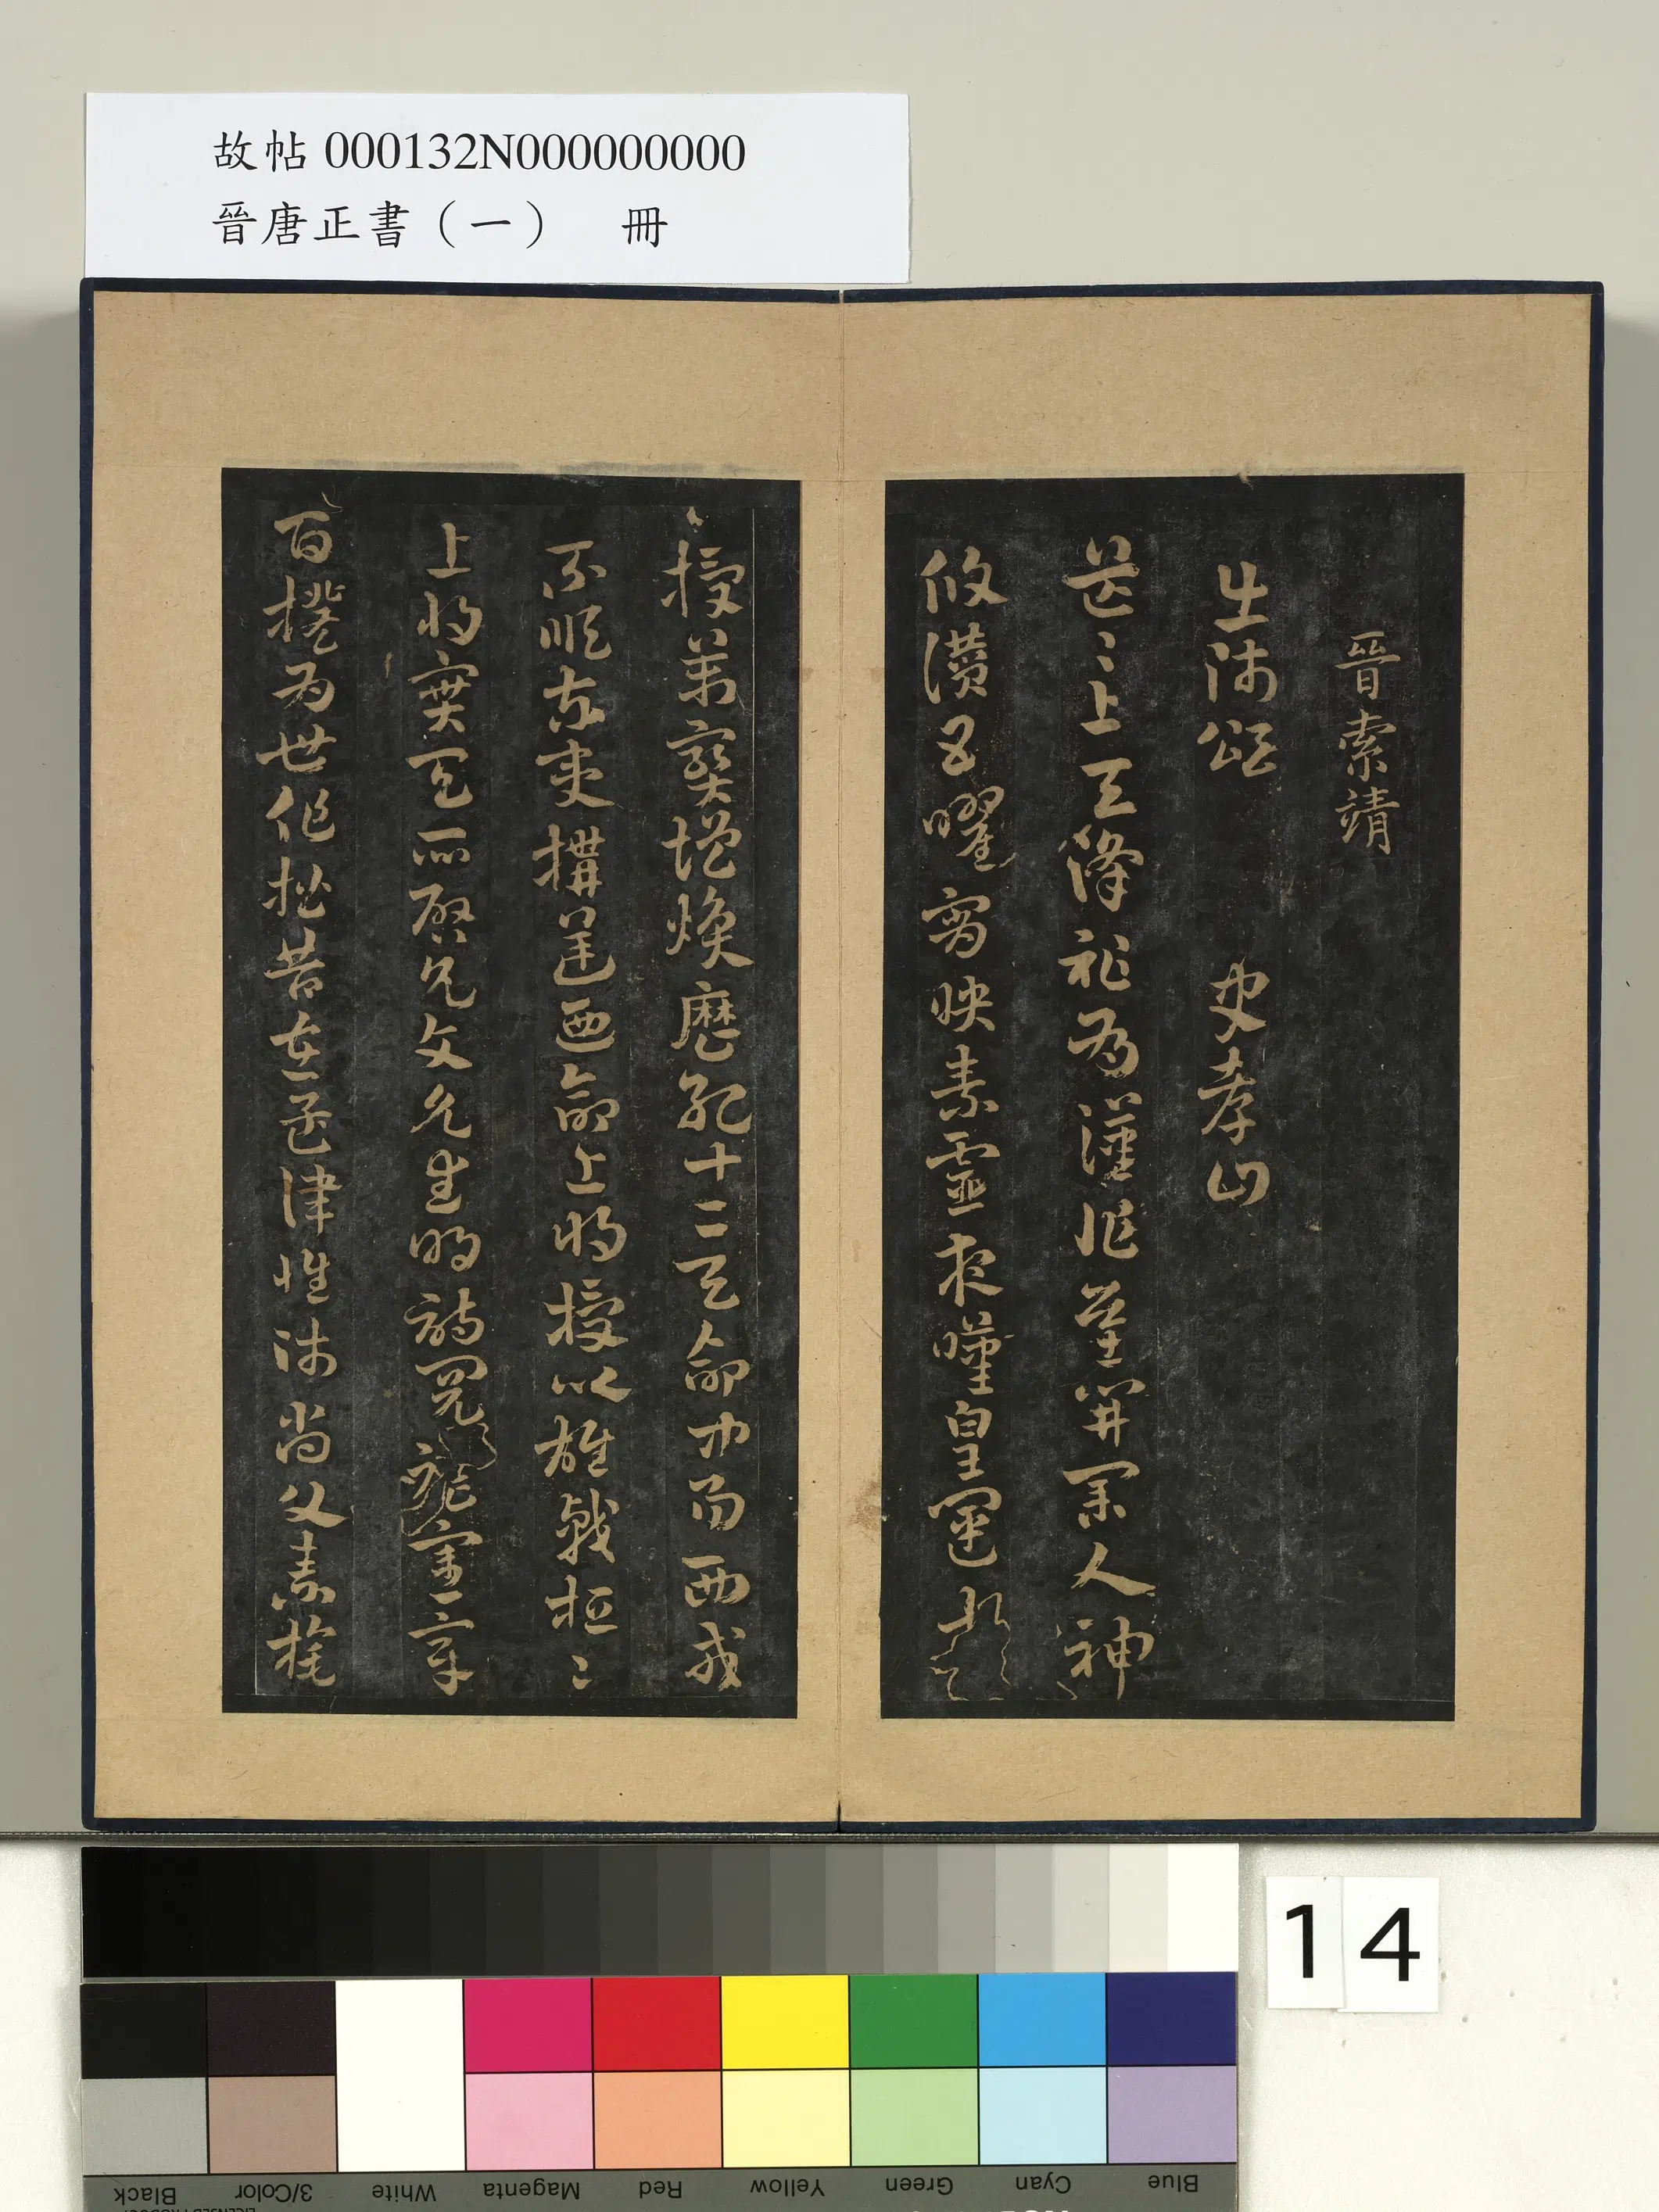 故帖 000132N000000000
晉唐正書（一） 冊
晉索靖
出師頌 史孝山
茫〻上天降祚為漢作基開業人神
攸讚五曜宵映素靈夜嘆皇運
授萬寶增煥歷紀十二天命中易西戎
不順東夷構逆西命上將授以雄戟桓〻
上將寶天所啓允文允武明詩閱禮憲章
百揆為世作楷昔在孟津惟師尚父素旄
14
Black 3/Color White Magenta Red Yellow Green Cyan Blue